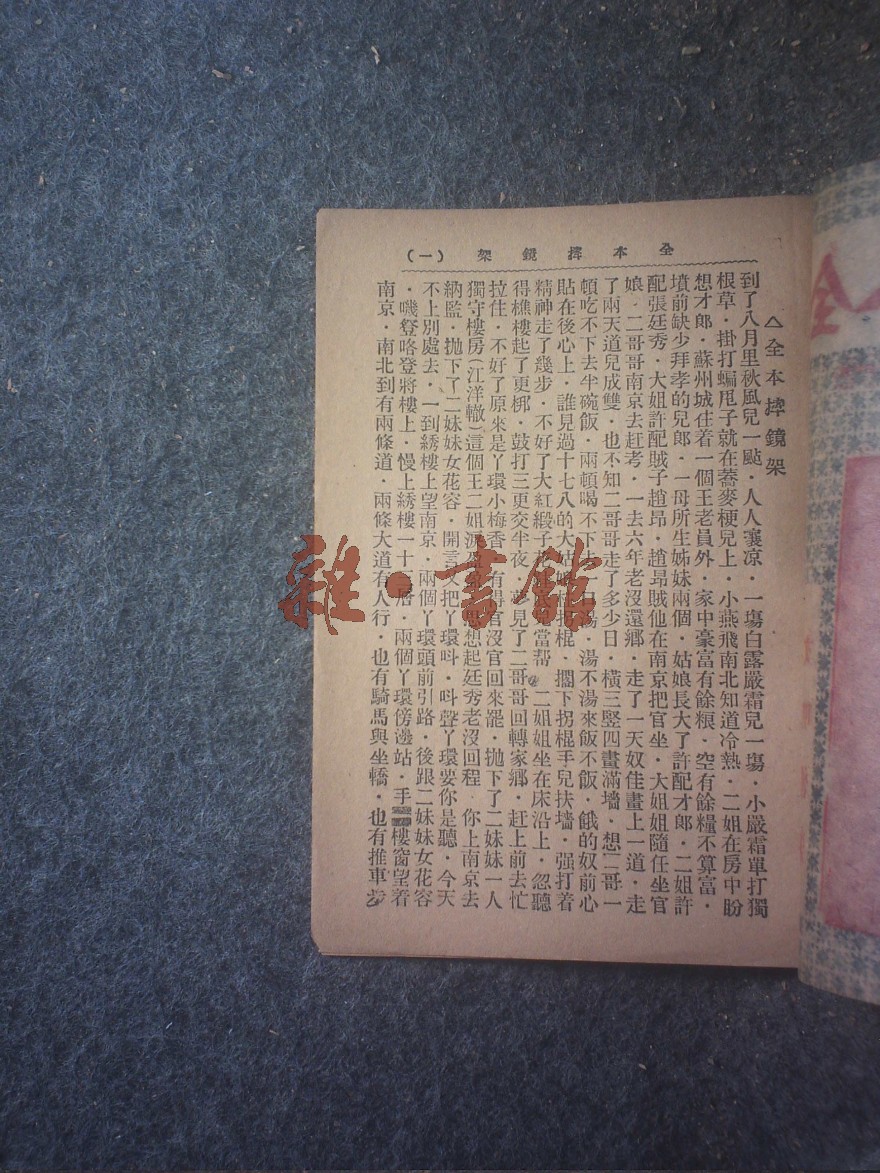 全本摔鏡架（一）
△全本摔鏡架
到了八月里秋風兒一颭·人人襄凉·一塲白露嚴霜兒一塲·小嚴霜單打獨
根草·掛打蝙甩子就在蕎麥梗兒上·小燕飛南北知道冷熱·二姐在房中盼
想才郎·蘇州城住着一個王老員外·家中豪富有餘粮·空有餘糧不算富·
墳前缺少拜孝的兒郎·一母所生姊妹兩個·姑娘長大了許配才郎·二姐許
配張廷秀·大姐許配賊子趙昂·趙昻賊他在南京把官坐·大姐姐隨任坐官
娘·二哥哥南京去赶考·一去六年老沒還鄉·走了一天奴佳畫上一道·走
了兩天道兒成雙·也不知二哥哥走了多少日·橫三竪四畫滿墻·想二哥一
頓吃不下去半碗飯·兩頓喝不下去一口湯·湯不湯來飯不飯·餓的奴前心
貼在後心上·誰見過十七八的大姑娘拐棍·擱下拐棍手兒扶墻·强打着
精神走了幾步·不好了大紅緞子當帮·二姐姐坐在床沿上·忽聽
得樵樓起了更梆·鼓打三更交半夜·夢見了二哥哥回轉家鄉·赶上前去忙
拉住·不好了原來是丫環小梅香·有得官沒官回來罷·抛下了二妹妹一人
獨守樓房（江洋轍）這個王二姐淚想起廷秀老沒回程·你上南京去
納監·抛下了二妹妹女花容·開言又把丫環呌·呌聲丫環要你是聽·今天
不上別處去·一到綉樓上望南京·兩個丫環頭前引路·後跟二妹妹女花容
·嘰登咯登將樓上·慢上綉樓一十層·兩個丫環傍邊站·手樓窗望着
南京·南北到有兩條道·兩條大道有人行·也有騎馬與坐轎·也有推車步
雜·書館